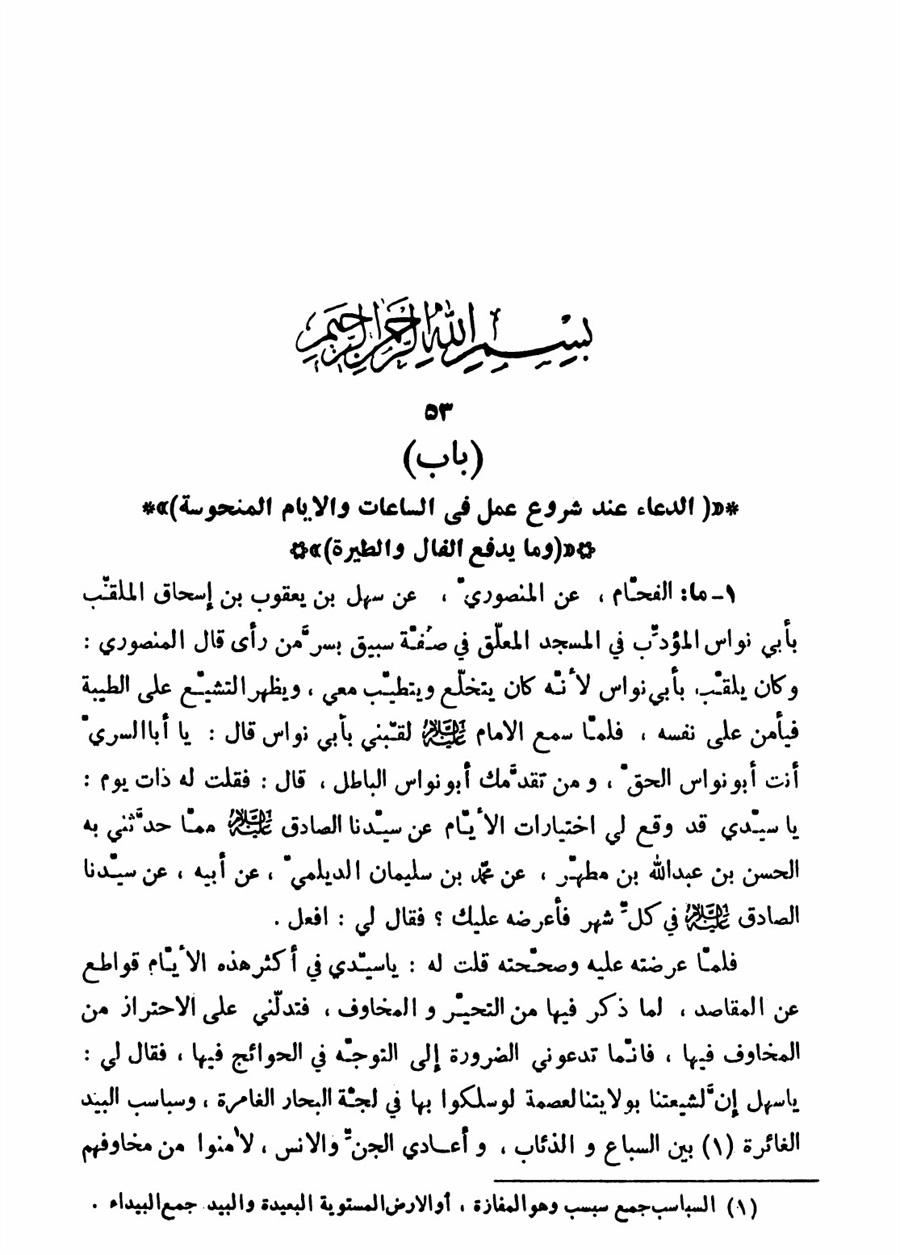 بسم الله الرحمن الرحيم
٥٣
(باب)
*«( الدعاء عند شروع عمل فى الساعات والايام المنحوسة)»*
✿«(وما يدفع الفال والطيرة)»✿
١- ما: الفحّام ، عن المنصوريّ ، عن سهل بن يعقوب بن إسحاق الملقّب
بأبي نواس المؤدّب في المسجد المعلّق في صفّة سبيق بسرّمن رأى قال المنصوري :
وكان يلقّب بأبي نواس لأنّه كان يتخلّع ويتطيّب معي ، ويظهر التشيّع على الطيبة
فيأمن على نفسه ، فلمّا سمع الامام عليه السلام لقّبني بأبي نواس قال : يا أباالسريّ
أنت أبونواس الحقّ ، و من تقدّمك أبونواس الباطل ، قال : فقلت له ذات يوم :
يا سيّدي قد وقع لي اختيارات الأيّام عن سيّدنا الصادق عليه السلام ممّا حدّثني به
الحسن بن عبدالله بن مطهّر ، عن محمد بن سليمان الديلميّ ، عن أبيه ، عن سيّدنا
الصادق عليه السلام في كلّ شهر فأعرضه عليك ؟ فقال لي : افعل .
فلمّا عرضته عليه وصحّحته قلت له : ياسيّدي في أكثر هذه الأيّام قواطع
عن المقاصد ، لما ذكر فيها من التحيّر و المخاوف ، فتدلّني على الاحتراز من
المخاوف فيها ، فانّما تدعوني الضرورة إلى التوجّه في الحوائج فيها ، فقال لي :
ياسهل إنّ لشيعتنا بولايتنا لعصمة لوسلكوا بها في لجّة البحار الغامرة ، وسباسب البيد
الغائرة (١) بين السباع و الذئاب ، و أعادي الجنّ والانس ، لأمنوا من مخاوفهم
(١) السباسب جمع سبسب وهو المفازة ، أوالارض المستوية البعيدة والبيد جمع البيداء .